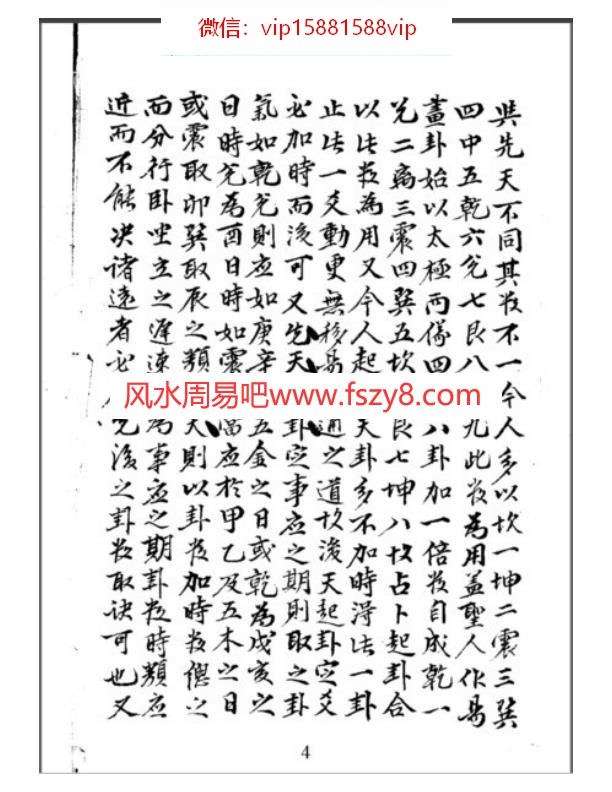 微信：vip15881588vip
與先天不同其数不一今人多以坎一坤二震三巽
四中五乾六兌七艮八九此数為用盖聖人作易
畫卦始以太極兩儀四八卦加一倍数自成乾一
兌二離三震四巽五坎艮七坤八故占卜起卦合
以此数為用又今人起天卦多不加時淂此一卦
止此一爻動更無移易通之道故後天起卦定爻
必加時而後可又先天卦定事應之期則取之卦
氣如乾兌則應如庚辛五金之日或乾為戌亥之
日時兌為酉日時如震當應於甲乙及五木之日
或震取卯巽取辰之類天則以卦数加時数總之
而分行卧坐立之遲速為事應之期卦数時類應
近而不能决諸遠者必先後之卦数取訣可也又
风水周易吧www.fszy8.com
4